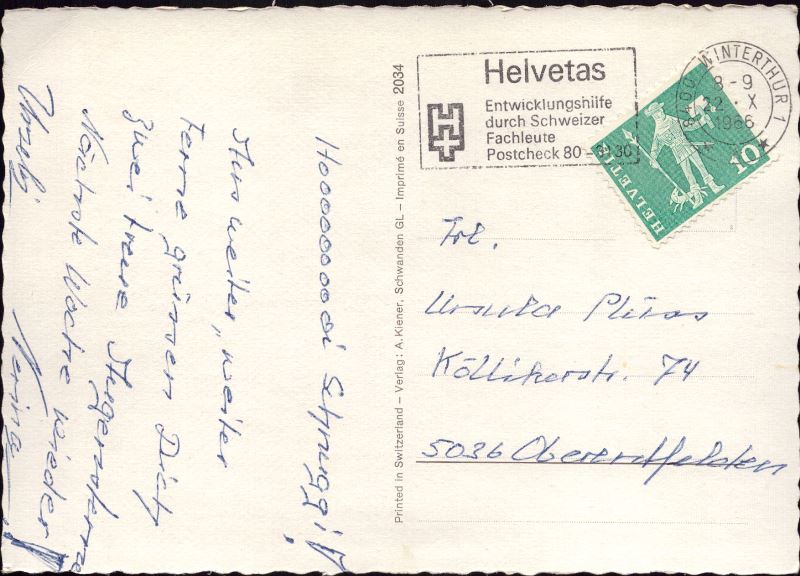 Hoooooooodi Schnuggi!
Aus weiter, weiter
Ferne grüssen Dich
zwei treue
Nächste Woche wieder!
Ursebi Nerina
Printed in Switzerland – Verlag: A. Kiener, Schwanden GL – Imprimé en Suisse 2034
Helvetas
Entwicklungshilfe
durch Schweizer
Fachleute
Postcheck 80 – 3130
8400 WINTERTHUR 1
8-9
22.X
1966
HELVETIA
10
Frl.
Ursula Plüss
Köllikerstr. 74
5036 Oberentfelden